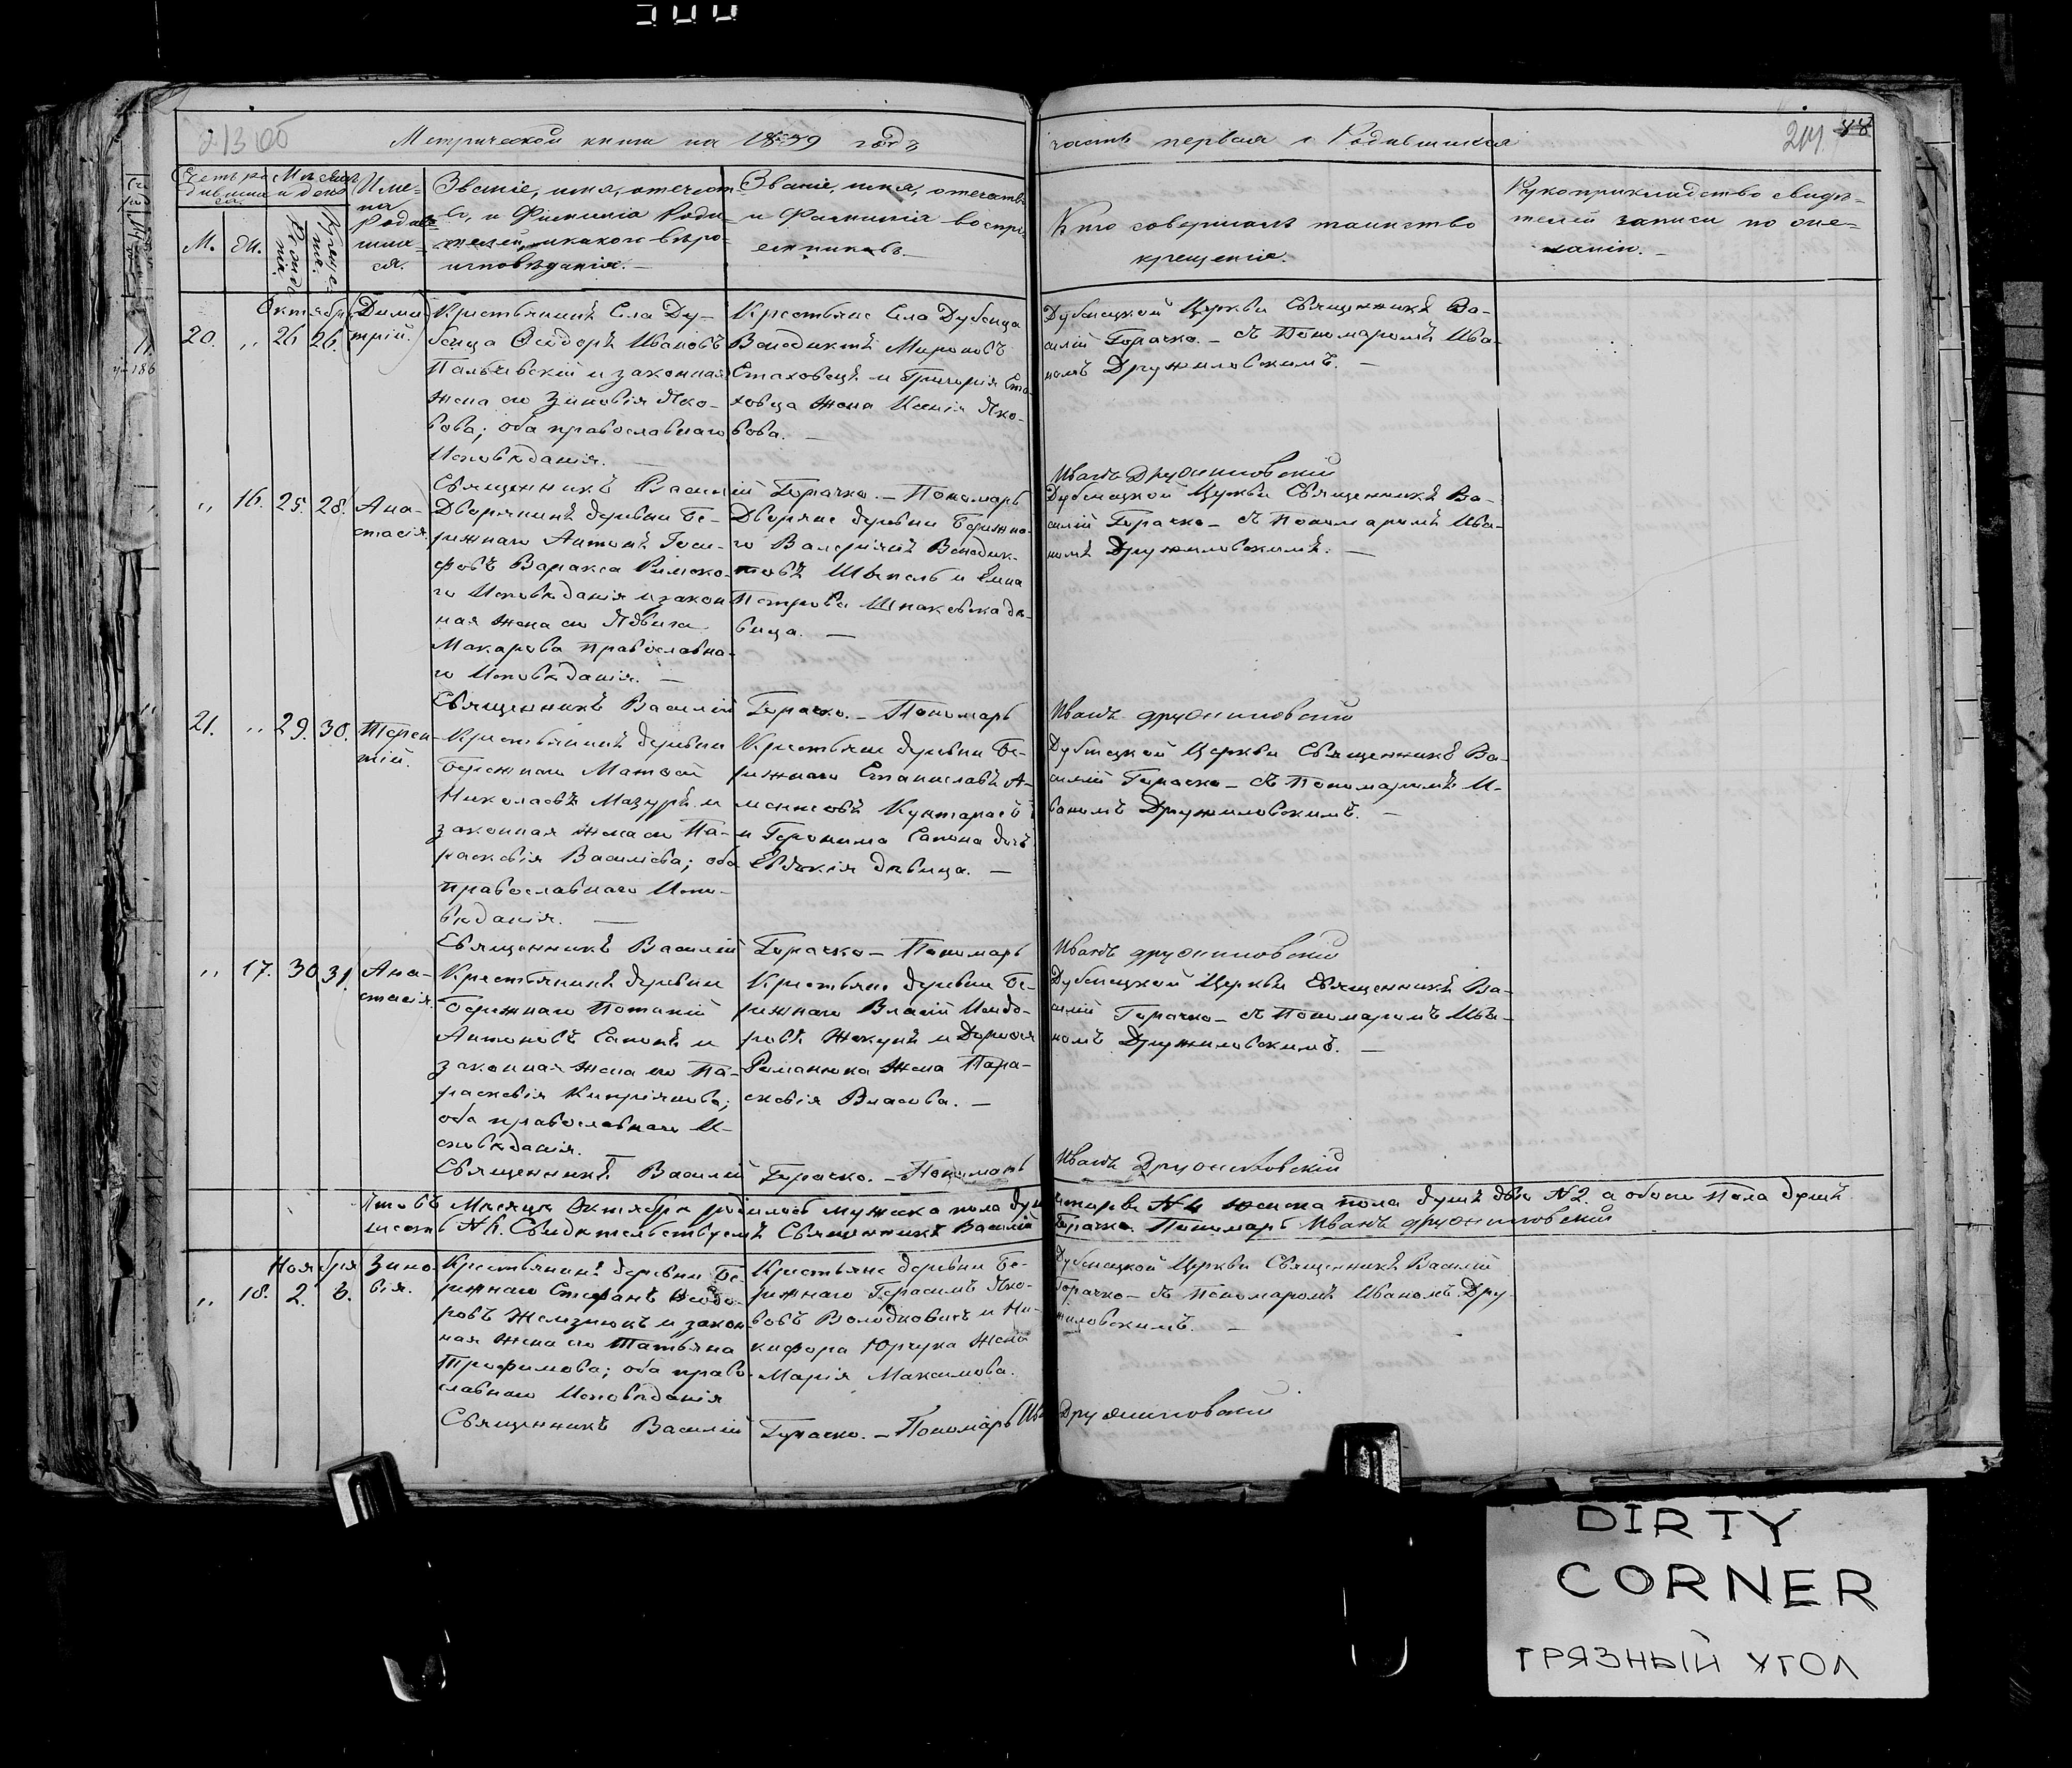 Метрической книги на 1859 годъ
часть первая о Родившихся
М.
Имена Родившихся.
Званіе, имя, отечество, и Фамилія Родителей, и какого вѣроисповѣданія.
Званіе, имя, отечество и Фамилія воспріемниковъ.
Кто совершалъ таинство
крещенія.
Рукоприкладство свидѣ-
телей записи по же-
ланію.
Октябрь
20. „ 26 26.
Дими
трій.
Крестьянинъ Села Ду-
беица Ѳеодоръ Ивановъ
и законная
жена его Зиновія Яко-
вова; оба православнаго
Исповѣданія.
Крестьяне Села Дубеица
Венедиктъ Мироновъ
Стаховецъ и Григорія Ста
ховца жена Ксенія Яко-
вова.
Церкви Священникъ Ва-
силій Горачко. – съ Пономаремъ Ива-
номъ Дружиловскимъ.
Священникъ Василій Горачко. – Пономарь
Иванъ Дружиловскій
„ 16. 25. 28.
Ана-
стасія.
Дворянинъ деревни Бе-
режнаго Антонъ
Варакса Римска-
го Исповѣданія и закон
ная жена его Ядвига
Макарова православна-
го Исповѣданія.
Дворяне деревни Бережна-
го Валеріянъ Венедик-
товъ и
Петрова дѣ-
вица.
Церкви Священникъ Ва-
силій Горачко – съ Пономаремъ Ива-
номъ Дружиловскимъ.
Священникъ Василій Горачко. – Пономарь
Иванъ дружиловскій
21. „ 29. 30.
Терен-
тій.
Крестьянинъ деревни
Бережнаго Матѳей
Николаевъ Мазуръ и
законная жена его Па-
раскевія Василіева; оба
православнаго Испо-
вѣданія.
Крестьяне деревни Бе-
режнаго Станиславъ А-
и Геронима Сапона дочь
Евдокія дѣвица.
Церкви Священникъ Ва-
силій Горачко – съ Пономаремъ И-
ваномъ Дружиловскимъ.
Священникъ Василій Горачко – Пономарь
Иванъ дружиловскій
„ 17. 30 31.
Ана-
стасія.
Крестьянинъ деревни
Бережнаго Потапій
Антоновъ Сапонъ и
законная жена его Па-
раскевія Кипріянова;
оба православнаго И-
сповѣданія.
Крестьяне деревни Бе-
режнаго Власій Исидо-
ровъ и Дороѳея
Романюка жена Пара-
скевія Власова.
Церкви Священникъ Ва-
силій Горачко – съ Пономаремъ Ива-
номъ Дружиловскимъ.
Священникъ Василій Горачко. – Пономарь
Иванъ Дружиловскій
Итого въ Мѣсяцѣ Октябрѣ родилось мужска пола душъ четыре N 4 женска пола душъ двѣ N 2. а обоего Пола душъ
шесть N 6. Свидѣтельствуемъ Священникъ Василій Горачко. Пономарь Иванъ дружиловскій
Ноября
„ 18. 2. 6.
Зино
вія.
Крестьянинъ деревни Бе-
режнаго Стефанъ Ѳеодо-
ровъ Железнюкъ и закон-
ная жена его Татьяна
Трофимова; оба право-
славнаго Исповѣданія
Крестьяне деревни Бе-
режнаго Герасимъ Яко-
вовъ Володковичъ и Ни-
кифора Юрчука жена
Марія Максимова.
Церкви Священникъ Василій
Горачко – съ Пономаремъ Иваномъ Дру-
жиловскимъ.
Священникъ Василій Горачко. – Пономарь Ив Дружиловскій
DIRTY
CORNER
ГРЯЗНЫЙ УГОЛ